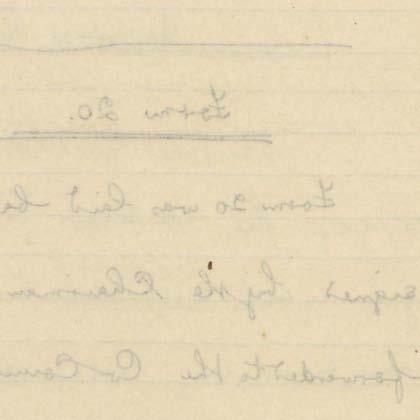 Form 20.
Form 20 was laid be
signed by the Chairman
forwarded to the Co. Coun